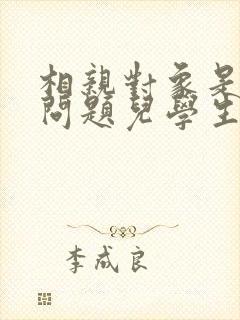 相親對象是
問題兒學生
李成良